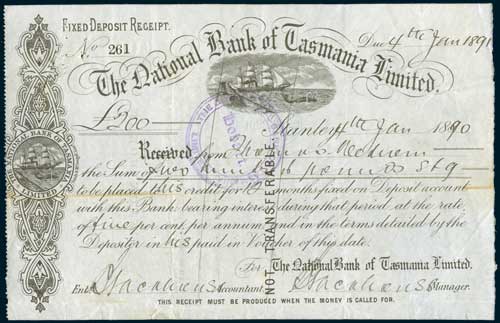 FIXED DEPOSIT RECEIPT.
No 261
Due 4th Jan 1891
The National Bank of Tasmania Limited.
£200
Stanley 4th Jan 1890
Received from Thomas
the Sum of Two hundred pounds Stg
to be placed to his credit for 12 months fixed on Deposit account
with this Bank bearing interest during that period at the rate
of five per cent. per annum and in the terms detailed by the
Depositor in his paid in Voucher of this date.
NOT TRANSFERABLE.
For The National Bank of Tasmania Limited.
Entd. Accountant. Manager.
THIS RECEIPT MUST BE PRODUCED WHEN THE MONEY IS CALLED FOR.
THE NATIONAL BANK OF TASMANIA
LIMITED